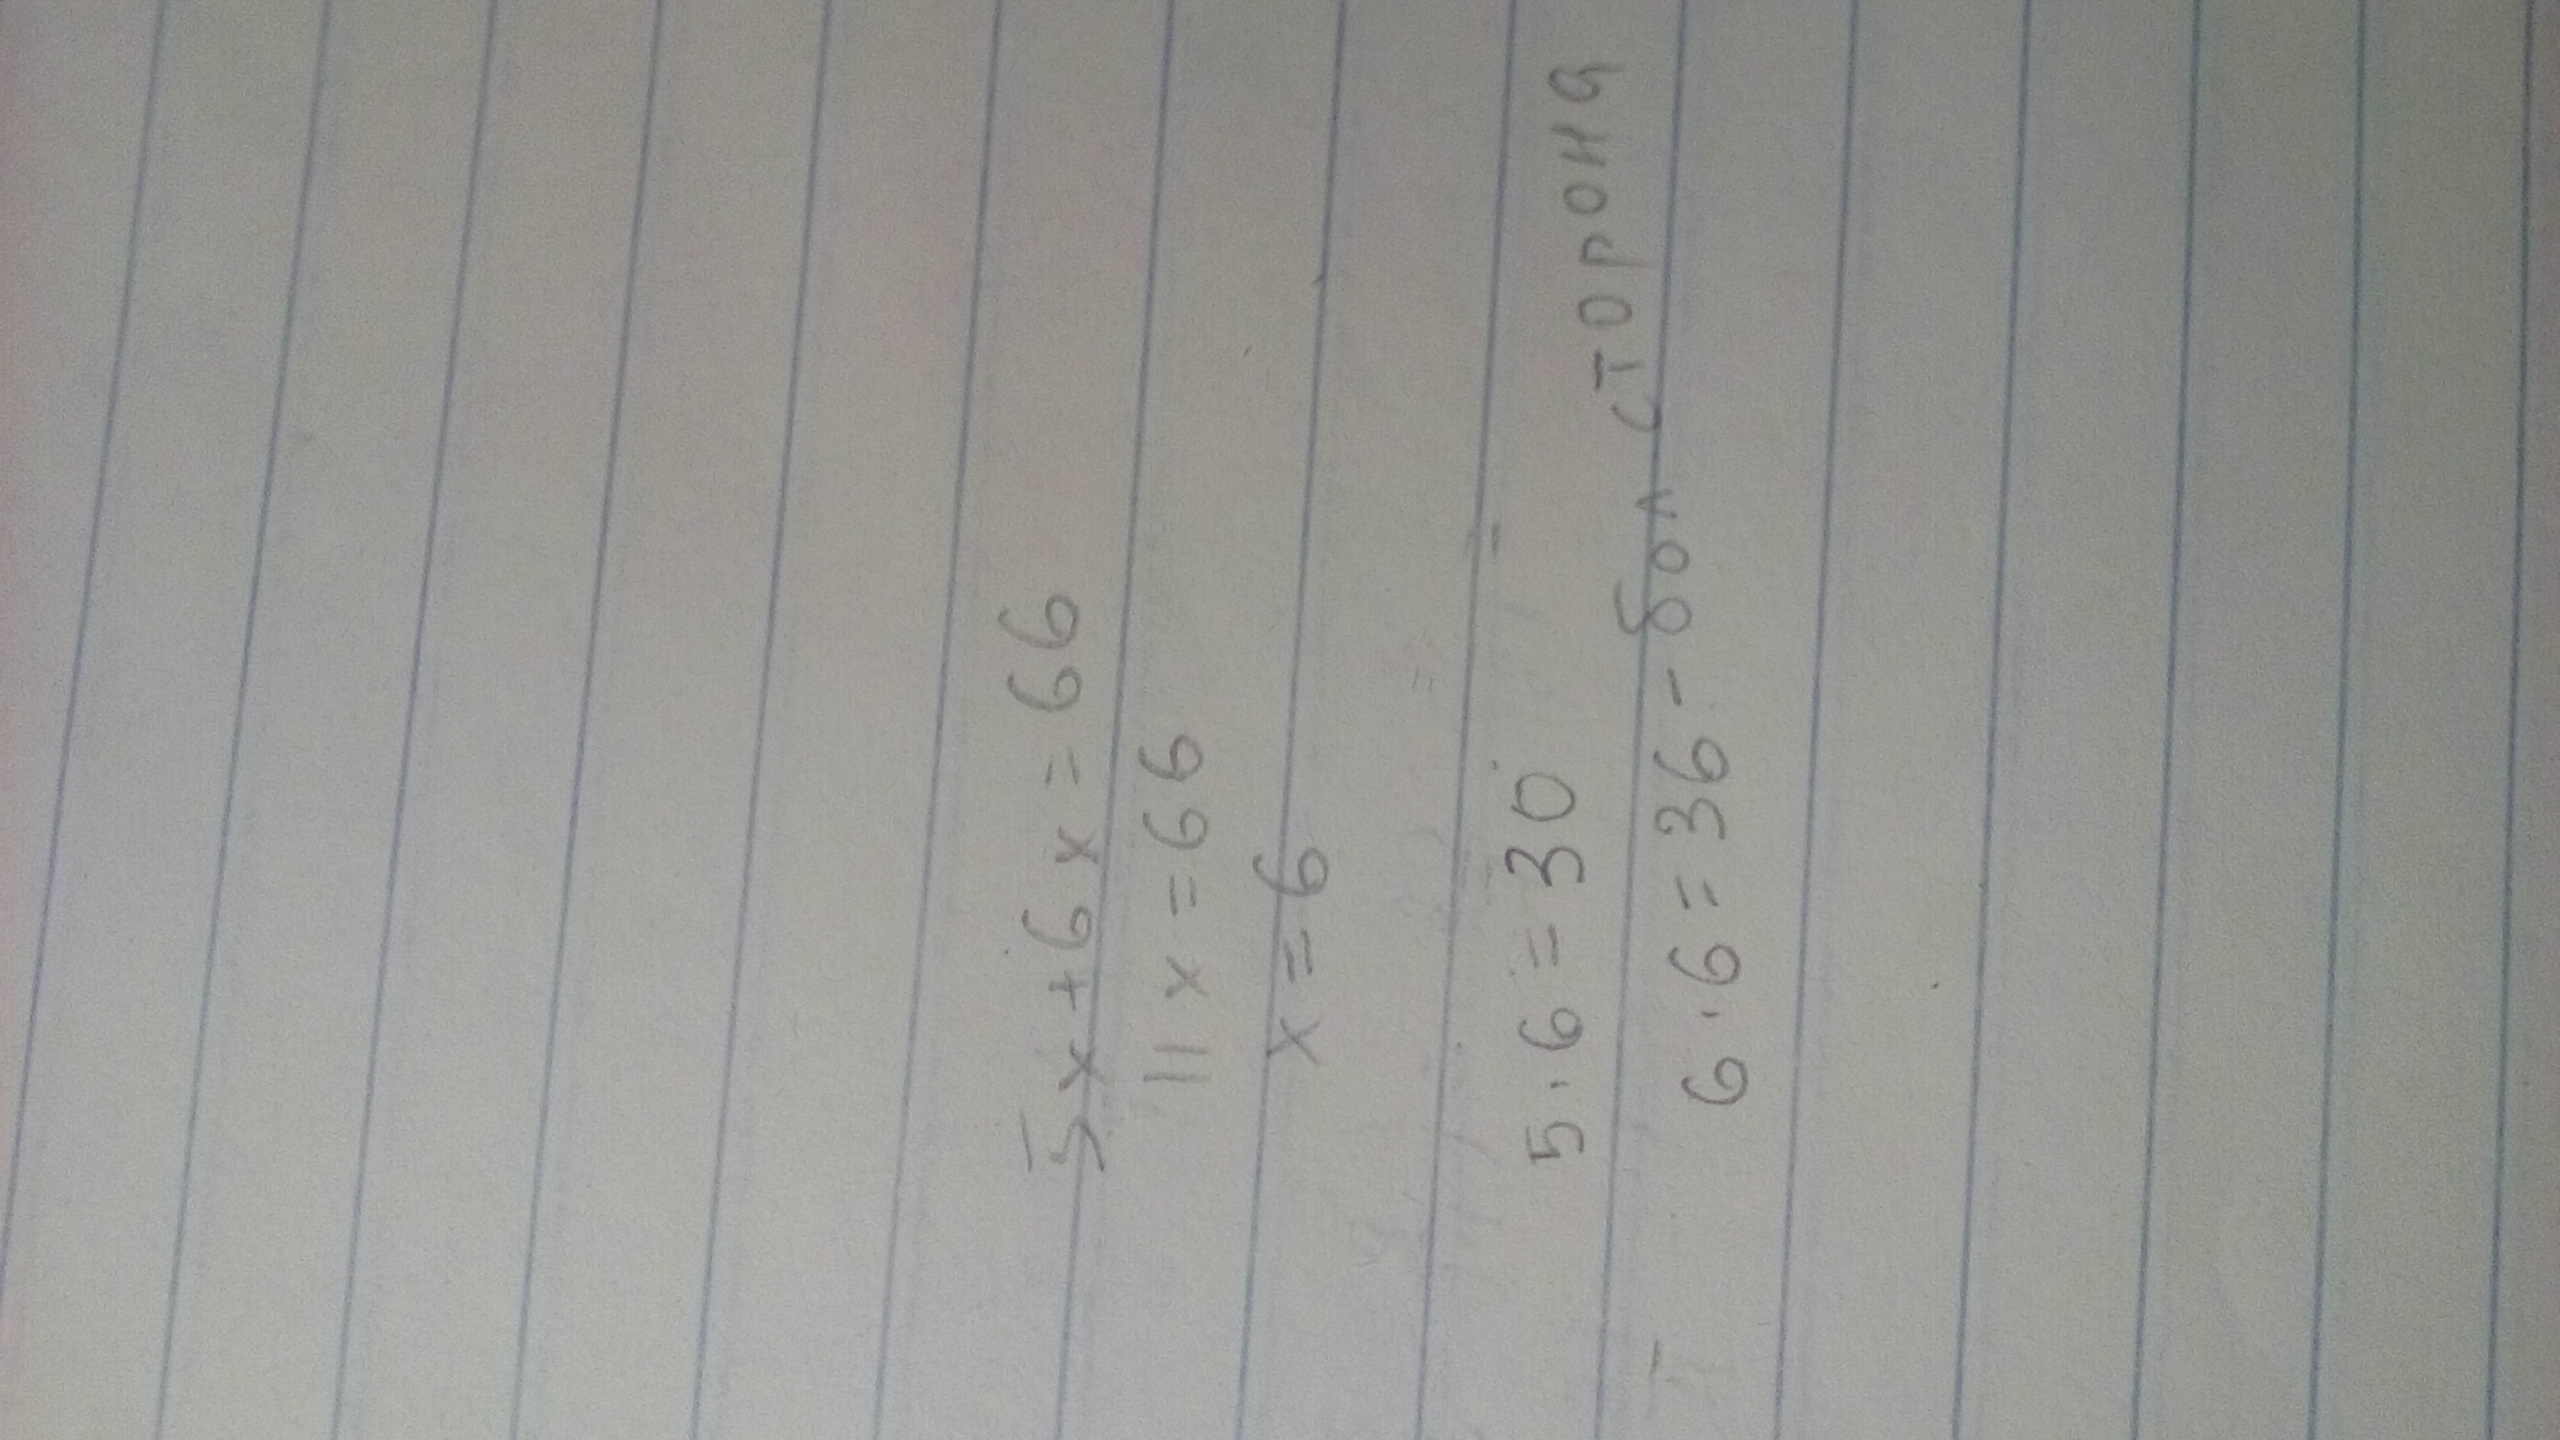 5x+6x=66
11x=66
x=6
5·6=30
6·6=36-бол сторона